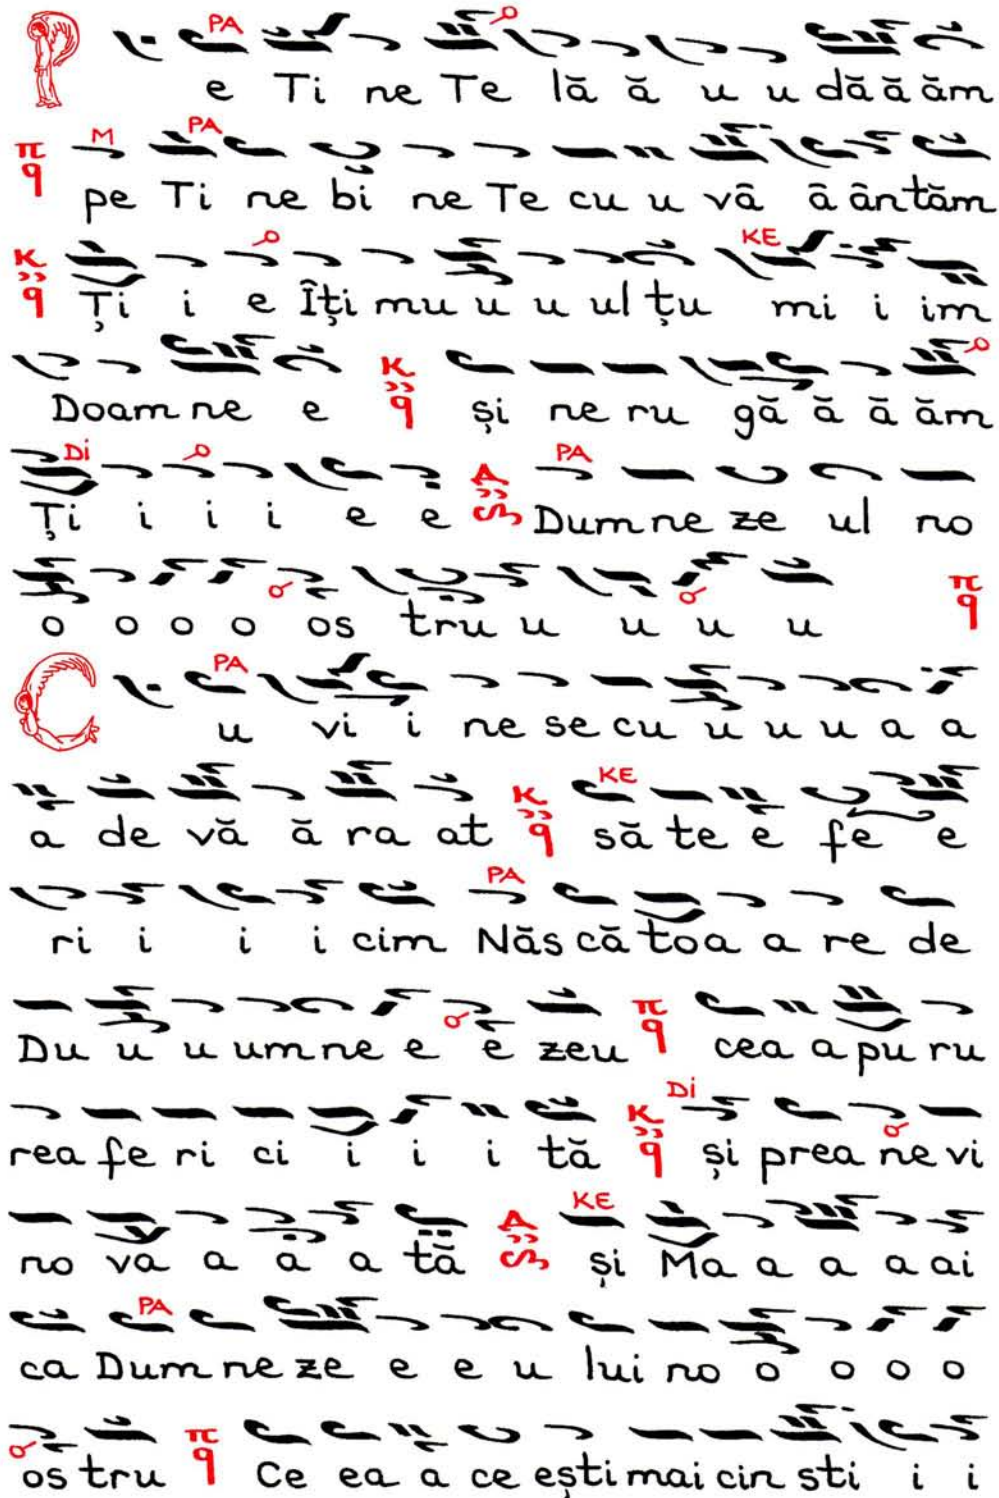 PA
P e Ti ne Te lă ă u u dă ă ăm
M PA
π q pe Ti ne bi ne Te cu u vâ â ân tăm
KE
K q Ți i e Îți mu u u ul țu mi i im
Doam ne e K q și ne ru gă ă ă ăm
Di PA
Ți i i i e e Δ Dum ne ze ul no
o o o o os tru u u u u π q
PA
C u vi i ne se cu u u u a a
KE
a de vă ă ra at K q să te e fe e
PA
ri i i i cim Năs că toa a re de
Du u u um ne e e zeu π q cea a pu ru
Di
rea fe ri ci i i i tă K q și prea ne vi
KE
no va a a a tă Δ și Ma a a a ai
PA
ca Dum ne ze e e u lui no o o o o
os tru π q Ce ea a ce ești mai cin sti i i